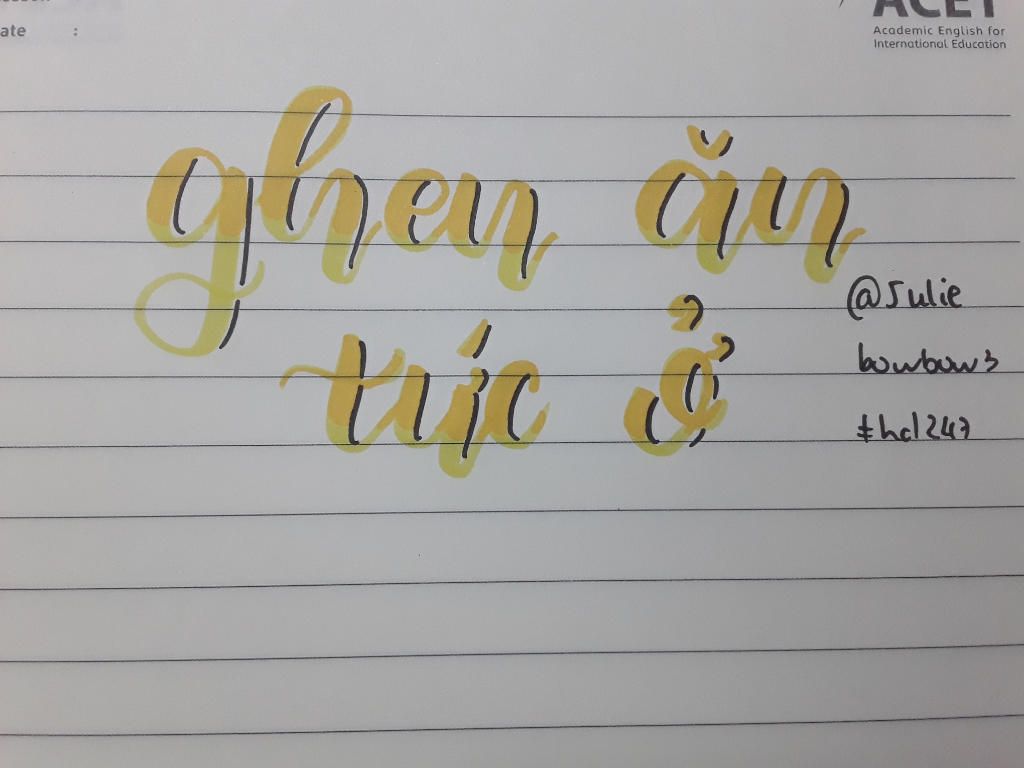 ate :
ACET
Academic English for
International Education
ghen ăn
tức ở
@Julie
bowbow3
#hd247